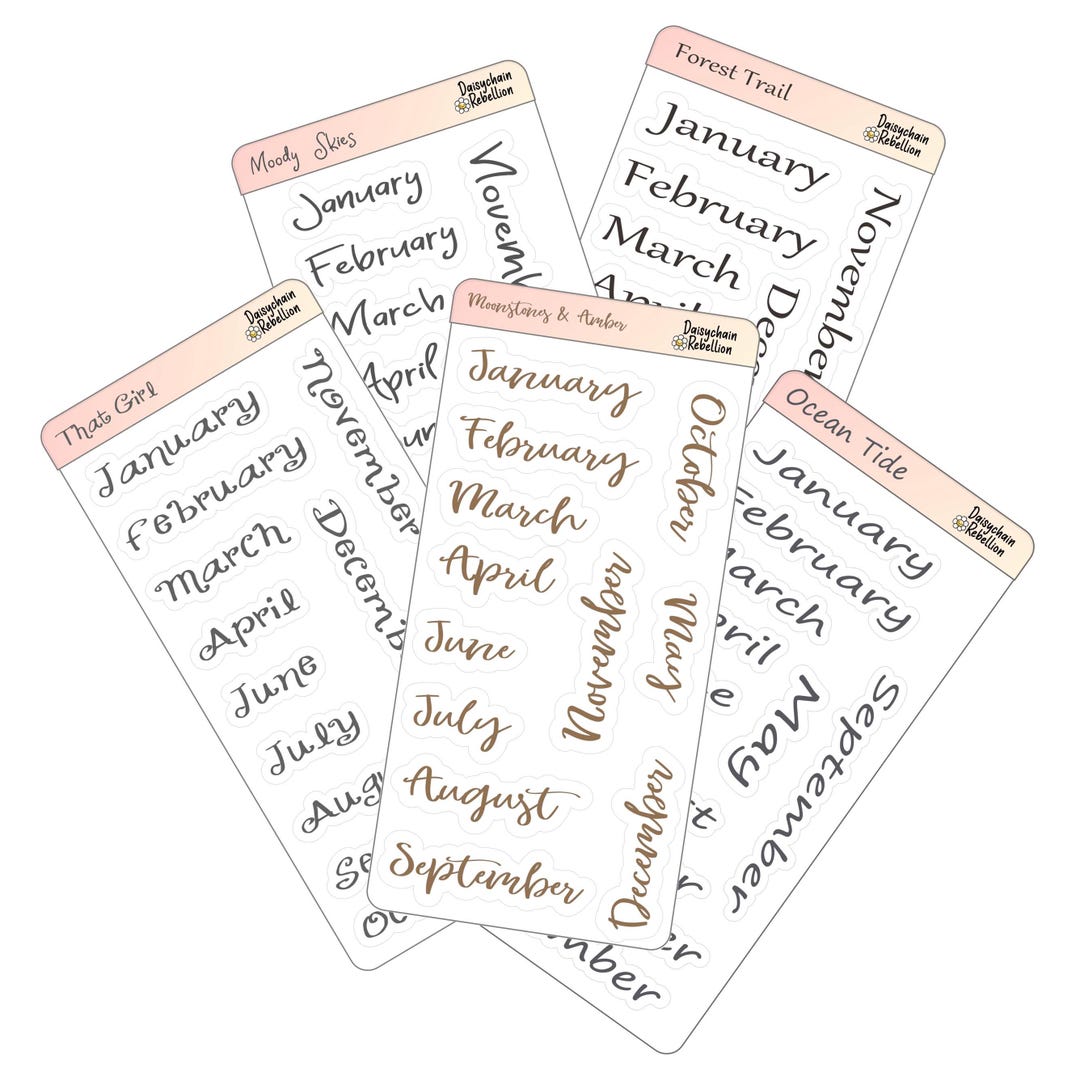 Moody Skies
Daisychain
Rebellion
January
February
March
April
Novemb
Forest Trail
Daisychain
Rebellion
January
February
March
April
November
Dece
That Girl
Daisychain
Rebellion
January
February
March
April
June
July
Aug
Se
Oc
November
Decemb
Moonstones & Amber
Daisychain
Rebellion
January
February
March
April
June
July
August
September
October
November
May
December
Ocean Tide
Daisychain
Rebellion
January
February
March
April
e
May
September
t
r
er
mber